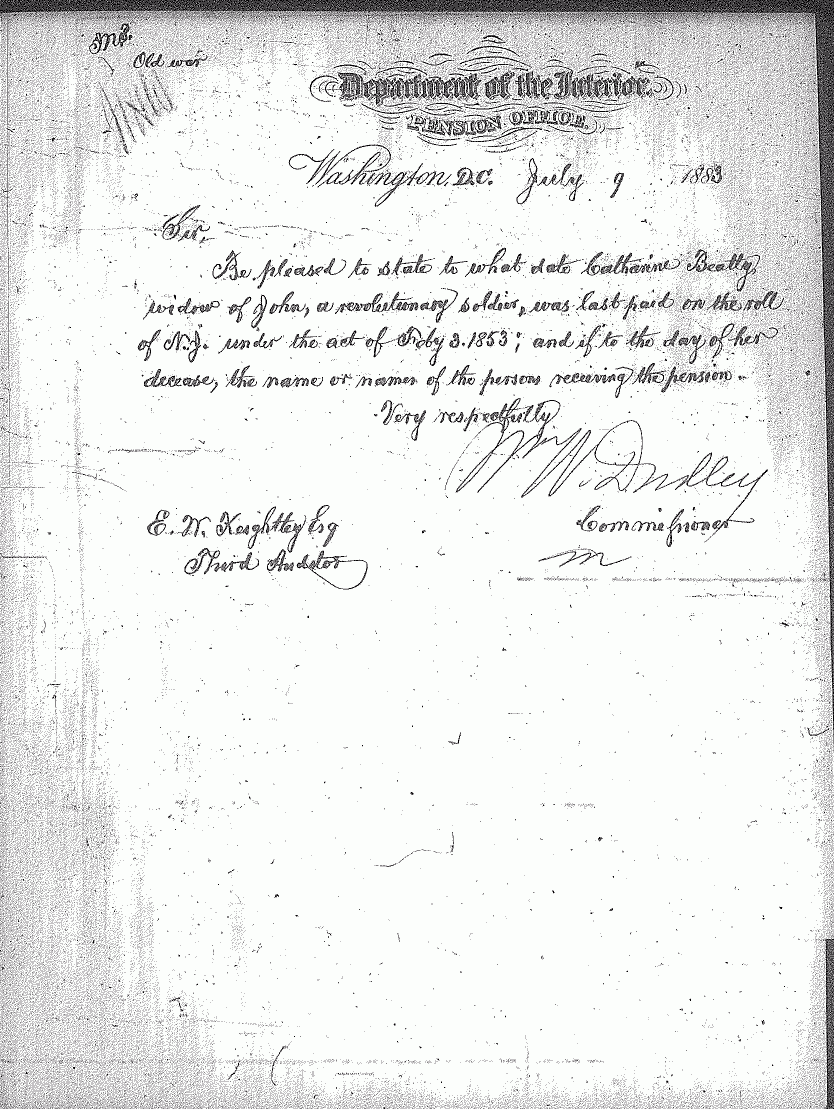 Old war
Department of the Interior.
PENSION OFFICE.
Washington, D.C. July 9 1883
Sir,
Be pleased to state to what date Catharine Beatty,
widow of John, a revolutionary soldier, was last paid on the roll
of N.J. under the act of Feby 3. 1853; and if to the day of her
decease, the name or names of the persons receiving the pension.
Very respectfully
Wm W. Dudley
Commissioner
E. W. Keightley Esq
Third Auditor
m